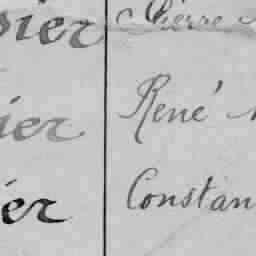 sier Pierre
ier René
er Constan